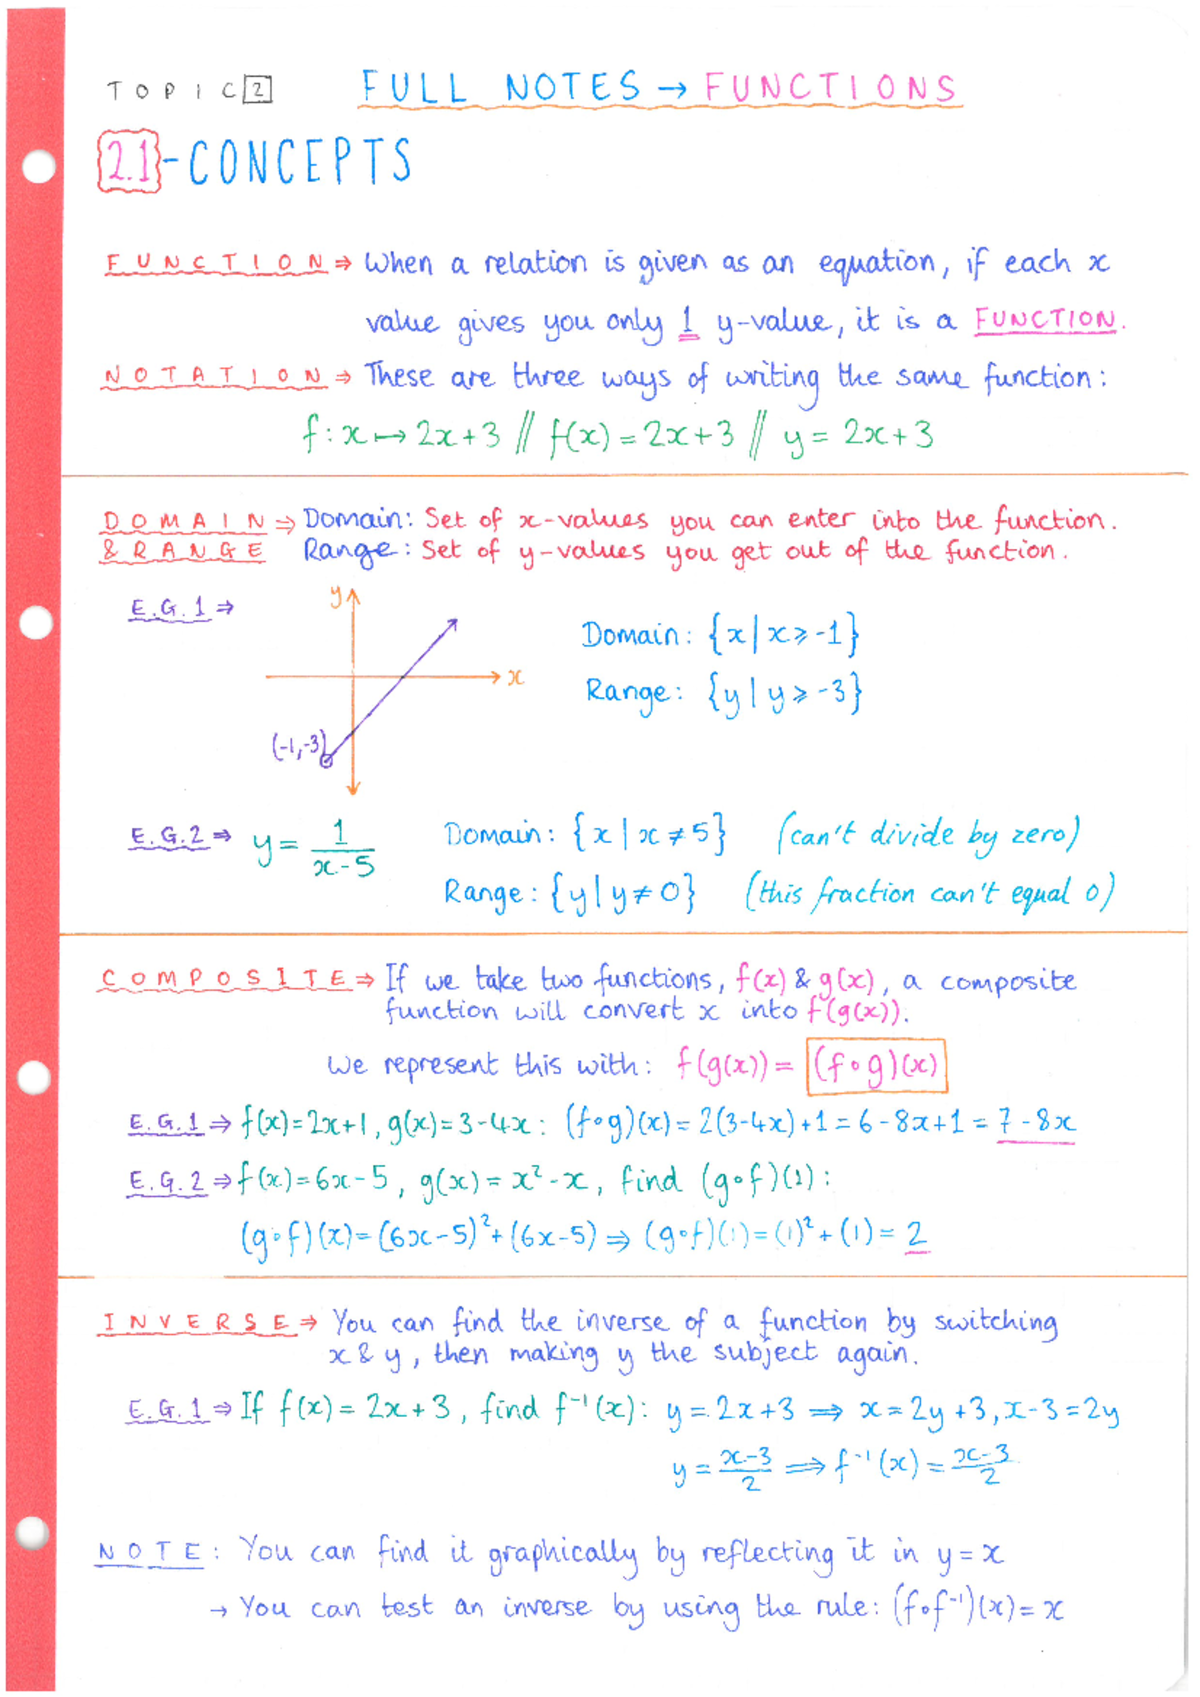 TOPIC 2 FULL NOTES → FUNCTIONS
2.1 - CONCEPTS
FUNCTION ⇒ When a relation is given as an equation, if each x
value gives you only 1 y-value, it is a FUNCTION.
NOTATION ⇒ These are three ways of writing the same function:
f : x ↦ 2x+3 // f(x) = 2x+3 // y = 2x+3
DOMAIN ⇒ Domain: Set of x-values you can enter into the function.
& RANGE Range: Set of y-values you get out of the function.
E.G.1 ⇒
y
x
(-1,-3)
Domain: {x | x ⩾ -1}
Range: {y | y ⩾ -3}
E.G.2 ⇒ y = 1/(x-5) Domain: {x | x ≠ 5} (can't divide by zero)
Range: {y | y ≠ 0} (this fraction can't equal 0)
COMPOSITE ⇒ If we take two functions, f(x) & g(x), a composite
function will convert x into f(g(x)).
We represent this with: f(g(x)) = (f∘g)(x)
E.G.1 ⇒ f(x)=2x+1, g(x)=3-4x: (f∘g)(x) = 2(3-4x)+1 = 6-8x+1 = 7-8x
E.G.2 ⇒ f(x)=6x-5, g(x)=x²-x, find (g∘f)(1):
(g∘f)(x)=(6x-5)²+(6x-5) ⇒ (g∘f)(1)=(1)²+(1)= 2
INVERSE ⇒ You can find the inverse of a function by switching
x & y, then making y the subject again.
E.G.1 ⇒ If f(x) = 2x+3, find f⁻¹(x): y = 2x+3 ⟹ x = 2y+3, x-3=2y
y = (x-3)/2 ⟹ f⁻¹(x) = (x-3)/2
NOTE: You can find it graphically by reflecting it in y = x
→ You can test an inverse by using the rule: (f∘f⁻¹)(x) = x